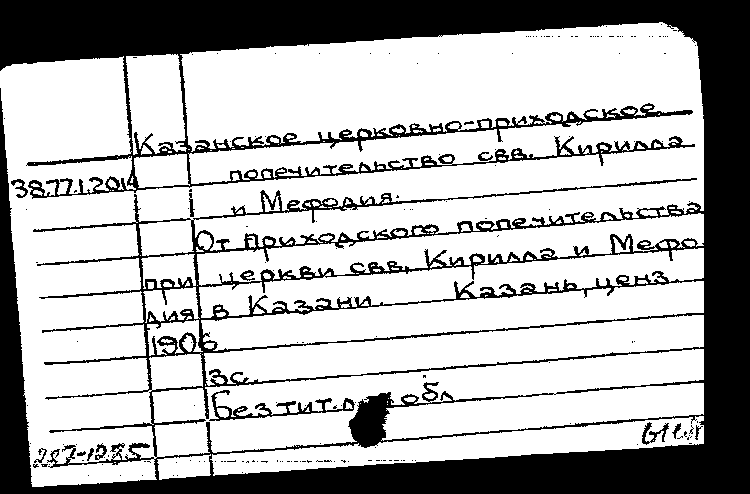 Казанское церковно-приходское
38.77.1.2014
попечительство свв. Кирилла
и Мефодия.
От Приходского попечительства
при церкви свв. Кирилла и Мефо
дия в Казани. Казань, ценз.
1906
3с.
Без тит.л. и обл
287-1285